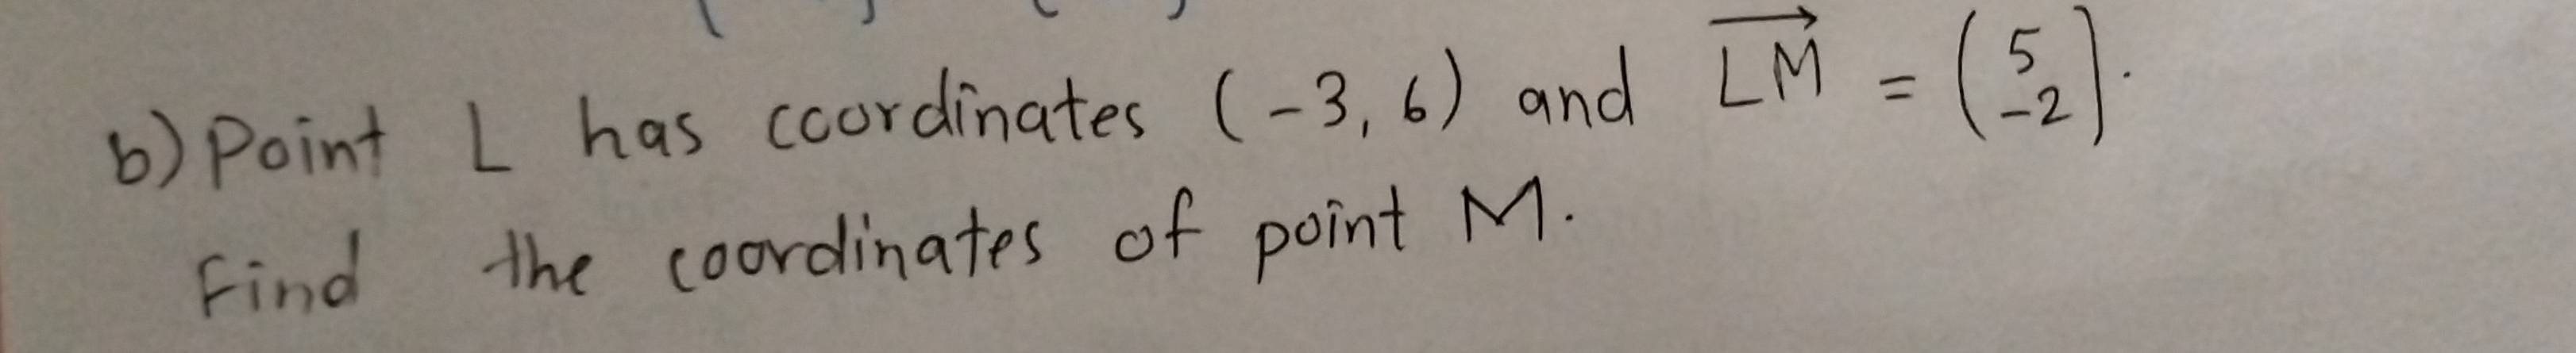 b) Point L has coordinates (-3, 6) and $\overrightarrow{LM} = \begin{pmatrix} 5 \\ -2 \end{pmatrix}$.
Find the coordinates of point M.